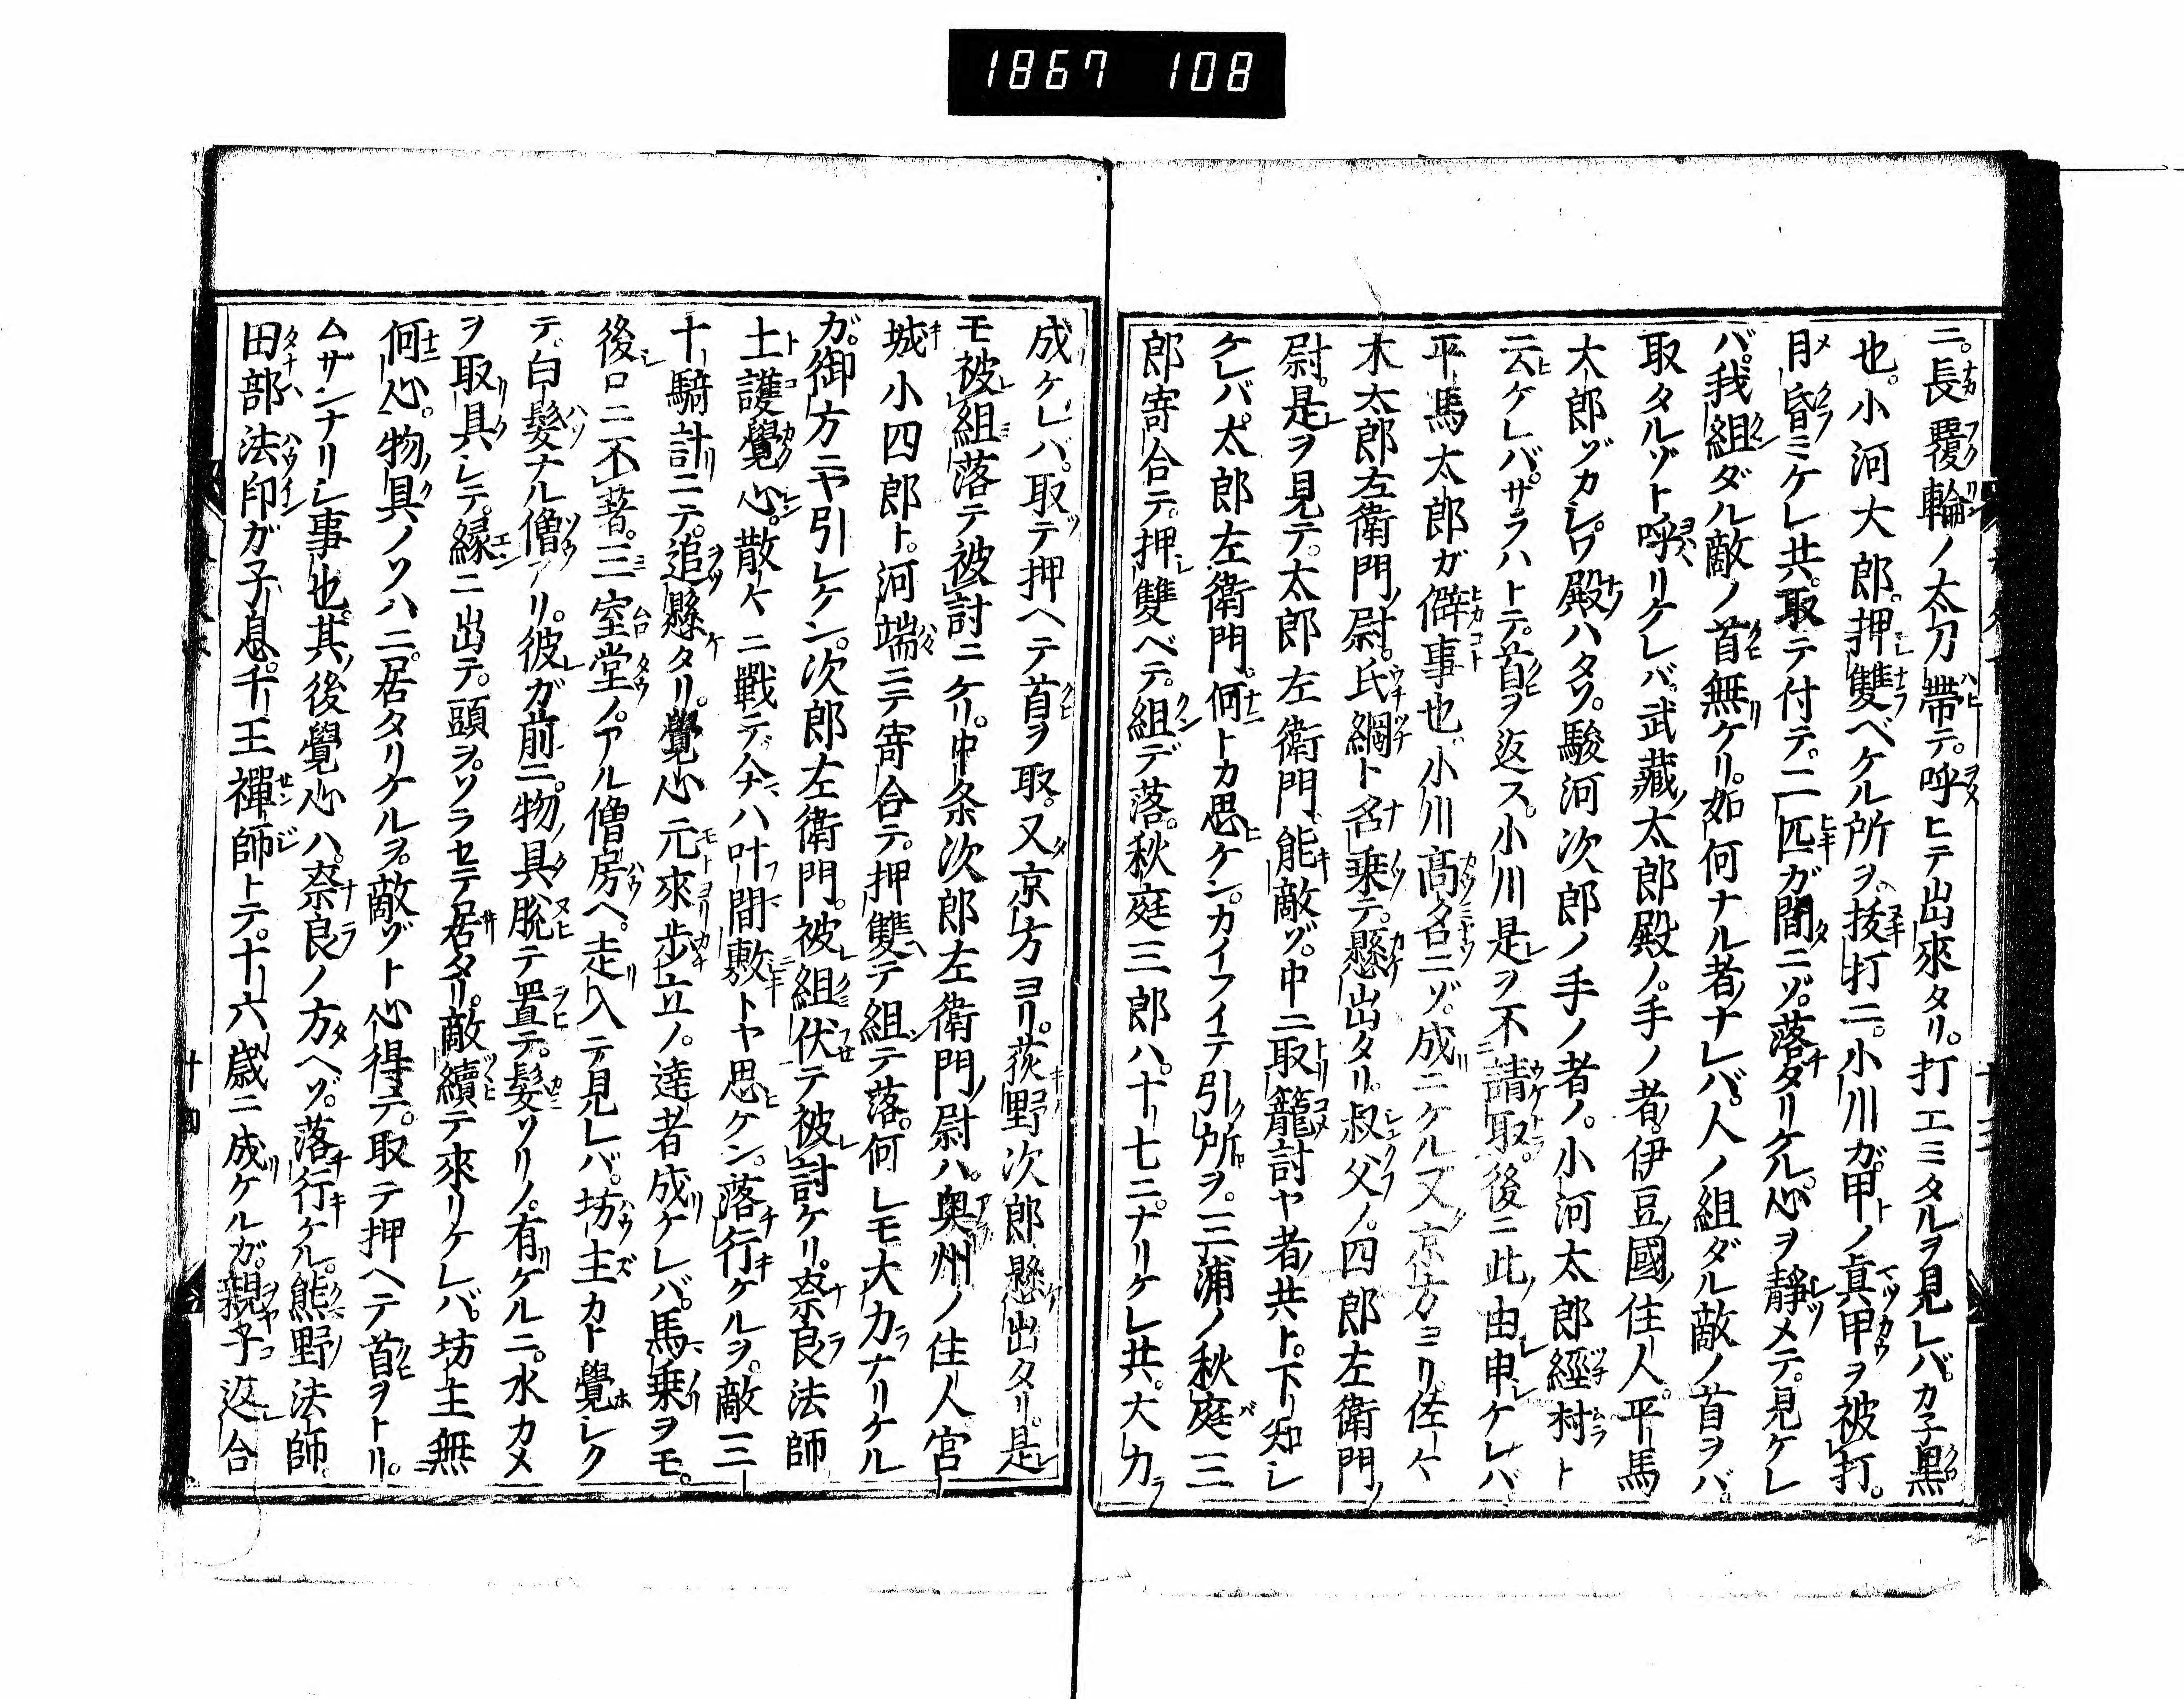 1867 108
ニ。長覆輪ノ太刀帶テ。呼ヒテ出來タリ。打エミタルヲ見レバ。カ子黒
也。小河大郎。押雙ベケル所ヲ。拔打ニ。小川ガ。甲ノ眞甲ヲ被打。
目昏ミケレ共。取テ付テ。二匹ガ間ニゾ。落タリケル。心ヲ靜メテ。見ケレ
バ。我組ダル敵ノ首無ケリ。如何ナル者ナレバ。人ノ組ダル敵ノ首ヲバ。
取タルゾト。呼リケレバ。武藏太郎殿ノ。手ノ者。伊豆國住人。平馬
太郎ゾカシ。ワ殿ハタソ。駿河次郎ノ手ノ者ノ。小河太郎經村ト
云ケレバ。サラハトテ。首ヲ返ス。小川是ヲ不請取。後ニ此由申ケレバ
平馬太郎ガ僻事也。小川高名ニゾ。成ニケル又京方ヨリ。佐々
木太郎左衛門尉。氏綱ト名乗テ。懸出タリ。叔父ノ。四郎左衛門
尉。是ヲ見テ。太郎左衛門。能敵ゾ。中ニ取籠討ヤ者共ト。下知シ
ケレバ。太郎左衛門。何トカ思ケン。カイフイテ引所ヲ。三浦ノ秋庭三
郎寄合テ。押雙ベテ。組デ落。秋庭三郎ハ。十七ニ。ナリケレ共。大力
成ケレバ。取テ押ヘテ首ヲ取。又京方ヨリ。荻野次郎懸出タリ。是
モ被組落テ被討ニケリ。中条次郎左衛門尉ハ。奥州ノ住人宮
城小四郎ト。河端ニテ寄合テ。押雙テ組テ落。何レモ大力ナリケル
ガ。御方ニヤ引レケン。次郎左衛門。被組伏テ被討ケリ。奈良法師
土護覺心。散々ニ戰テ。今ハ叶間敷トヤ思ケン。落行ケルヲ。敵三
十騎計ニテ。追懸タリ。覺心元來歩立ノ。達者成ケレバ。馬乗ヲモ。
後ロニ不著。三室堂ノ。アル僧房ヘ。走入テ見レバ。坊主カト覺シク
テ。白髮ナル僧アリ。彼ガ前ニ。物具脱テ置テ。髮ソリノ。有ケルニ。水カメ
ヲ取具シテ。縁ニ出テ。頭ヲ。ソラセテ居タリ。敵續テ來リケレバ。坊主無
何心。物具ノソハニ。居タリケルヲ。敵ゾト心得テ。取テ押ヘテ首ヲトリ。
ムザンナリシ事也。其後覺心ハ。奈良ノ方ヘゾ。落行ケル。熊野法師
田部法印ガ子息。千王禪師トテ。十六歳ニ成ケルガ。親子返合
十四